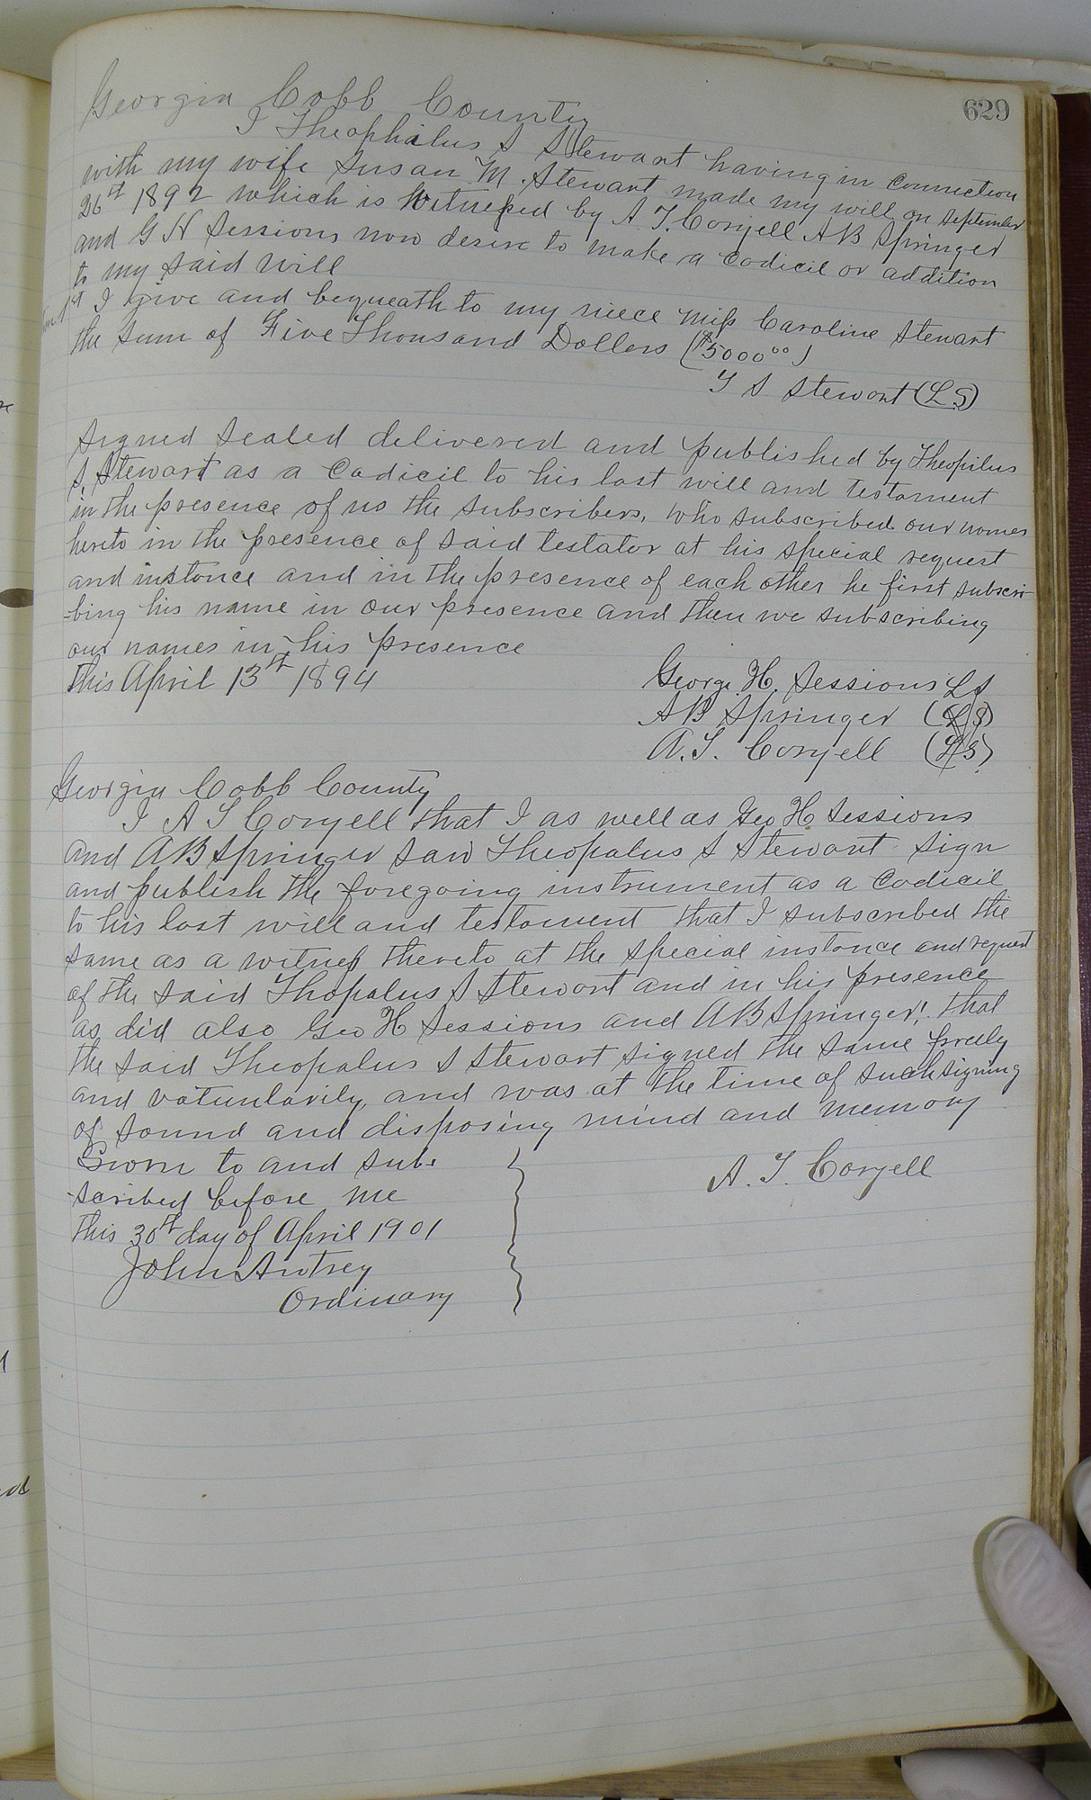 629
Georgia Cobb County
I Theophilus S Stewart having in connection
with my wife Susan M. Stewart made my will on September
26st 1892 which is Witnessed by A. T. Coryell A B Springer
and G H Sessions now desire to make a codicil or addition
to my said will
1st I give and bequeath to my niece Miss Caroline Stewart
the sum of Five Thousand Dollers ($5000 00)
T S Stewart (LS)
Signed Sealed delivered and published by Theopilus
S, Stewart as a Codicil to his last will and testament
in the presence of us the subscribers, who subscribed our names
hereto in the presence of said testator at his special request
and instance and in the presence of each other he first subscri-
-bing his name in our presence and then we subscribing
our names in his presence
This April 13st 1894
George H. Sessions LS
A B Springer (LS)
A. T. Coryell (LS)
Georgia Cobb County
I A T Coryell that I as well as Geo H Sessions
and A B Springer saw Theopalus S Stewart sign
and publish the foregoing instrument as a Codicil
to his last will and testament that I subscribed the
same as a witness thereto at the special instance and request
of the said Thopalus S Stewart and in his presence
as did also Geo H Sessions and A B Springer, that
the said Theopalus S Stewart signed the same freely
and votuntarily, and was at the time of such signing
of sound and disposing mind and memory
Sworn to and sub-
-scribed before me
A. T. Coryell
this 30st day of April 1901
John Awtrey
Ordinary